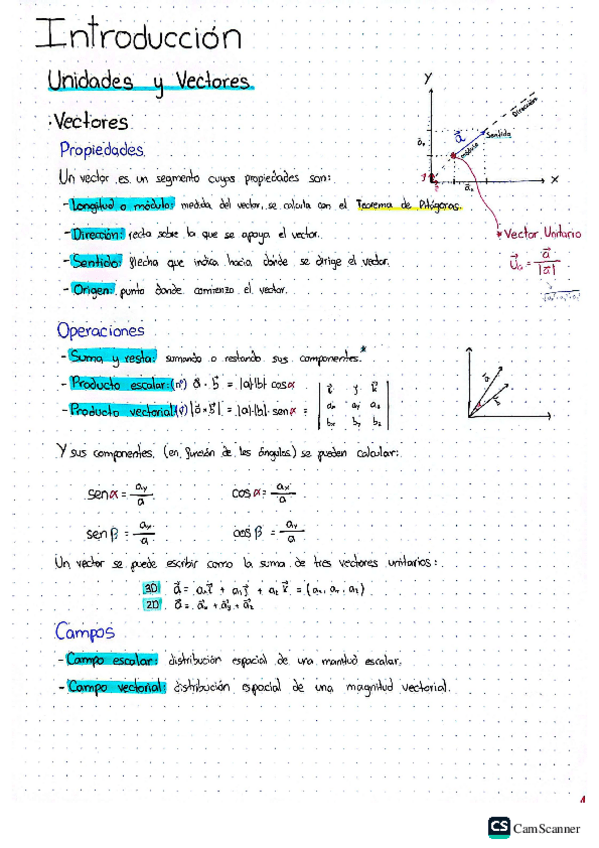 Introducción
Unidades y Vectores
· Vectores
Propiedades
Un vector es un segmento cuyas propiedades son:
- Longitud o módulo: medida del vector, se calcula con el Teorema de Pitágoras.
- Dirección: recta sobre la que se apoya el vector.
- Sentido: flecha que indica hacia dónde se dirige el vector.
- Origen: punto donde comienza el vector.
Y
Dirección
Sentido
a⃗
módulo
X
Vector Unitario
U⃗a = a⃗ / |a⃗|
Operaciones
- Suma y resta: sumando o restando sus componentes.*
- Producto escalar: (nº) a⃗ · b⃗ = |a|·|b|· cos α
- Producto vectorial: (v⃗) |a⃗ × b⃗| = |a|·|b|· sen α =
i⃗ j⃗ k⃗
ax ay az
bx by bz
Y sus componentes (en función de los ángulos) se pueden calcular:
sen α = ay / a cos α = ax / a
sen β = ax / a cos β = ay / a
Un vector se puede escribir como la suma de tres vectores unitarios:
3D a⃗ = ax i⃗ + ay j⃗ + az k⃗ = (ax, ay, az)
2D a⃗ = a⃗x + a⃗y + a⃗z
Campos
- Campo escalar: distribución espacial de una mantud escalar.
- Campo vectorial: distribución espacial de una magnitud vectorial.
1
CS CamScanner